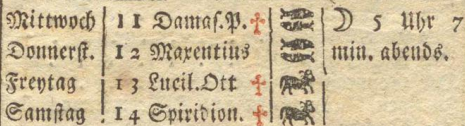 Mittwoch 11 Damaſ.P. ☽ 5 Uhr 7
Donnerſt. 12 Maxentius min. abends.
Freytag 13 Lucil.Ott
Samſtag 14 Spiridion.